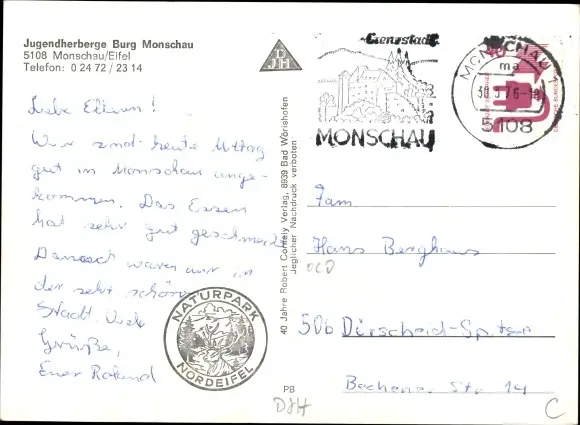 Jugendherberge Burg Monschau
5108 Monschau/Eifel
Telefon: 0 24 72 / 23 14
DJH
Grenzstadt
MONSCHAU
MONSCHAU 1
ma
30.3.76-18
5108
Liebe Eltern!
Wir sind heute Mittag
gut in Monschau ange-
kommen. Das Essen
hat sehr gut geschmeckt
Danach waren wir in
der sehr schönen
Stadt. Viele
Grüße,
Euer Roland
NATURPARK
NORDEIFEL
40 Jahre Robert Comely Verlag, 8939 Bad Wörishofen
Jeglicher Nachdruck verboten
PB
DJH
Fam.
Hans Berghaus
506 - Spitze
Str. 14
C